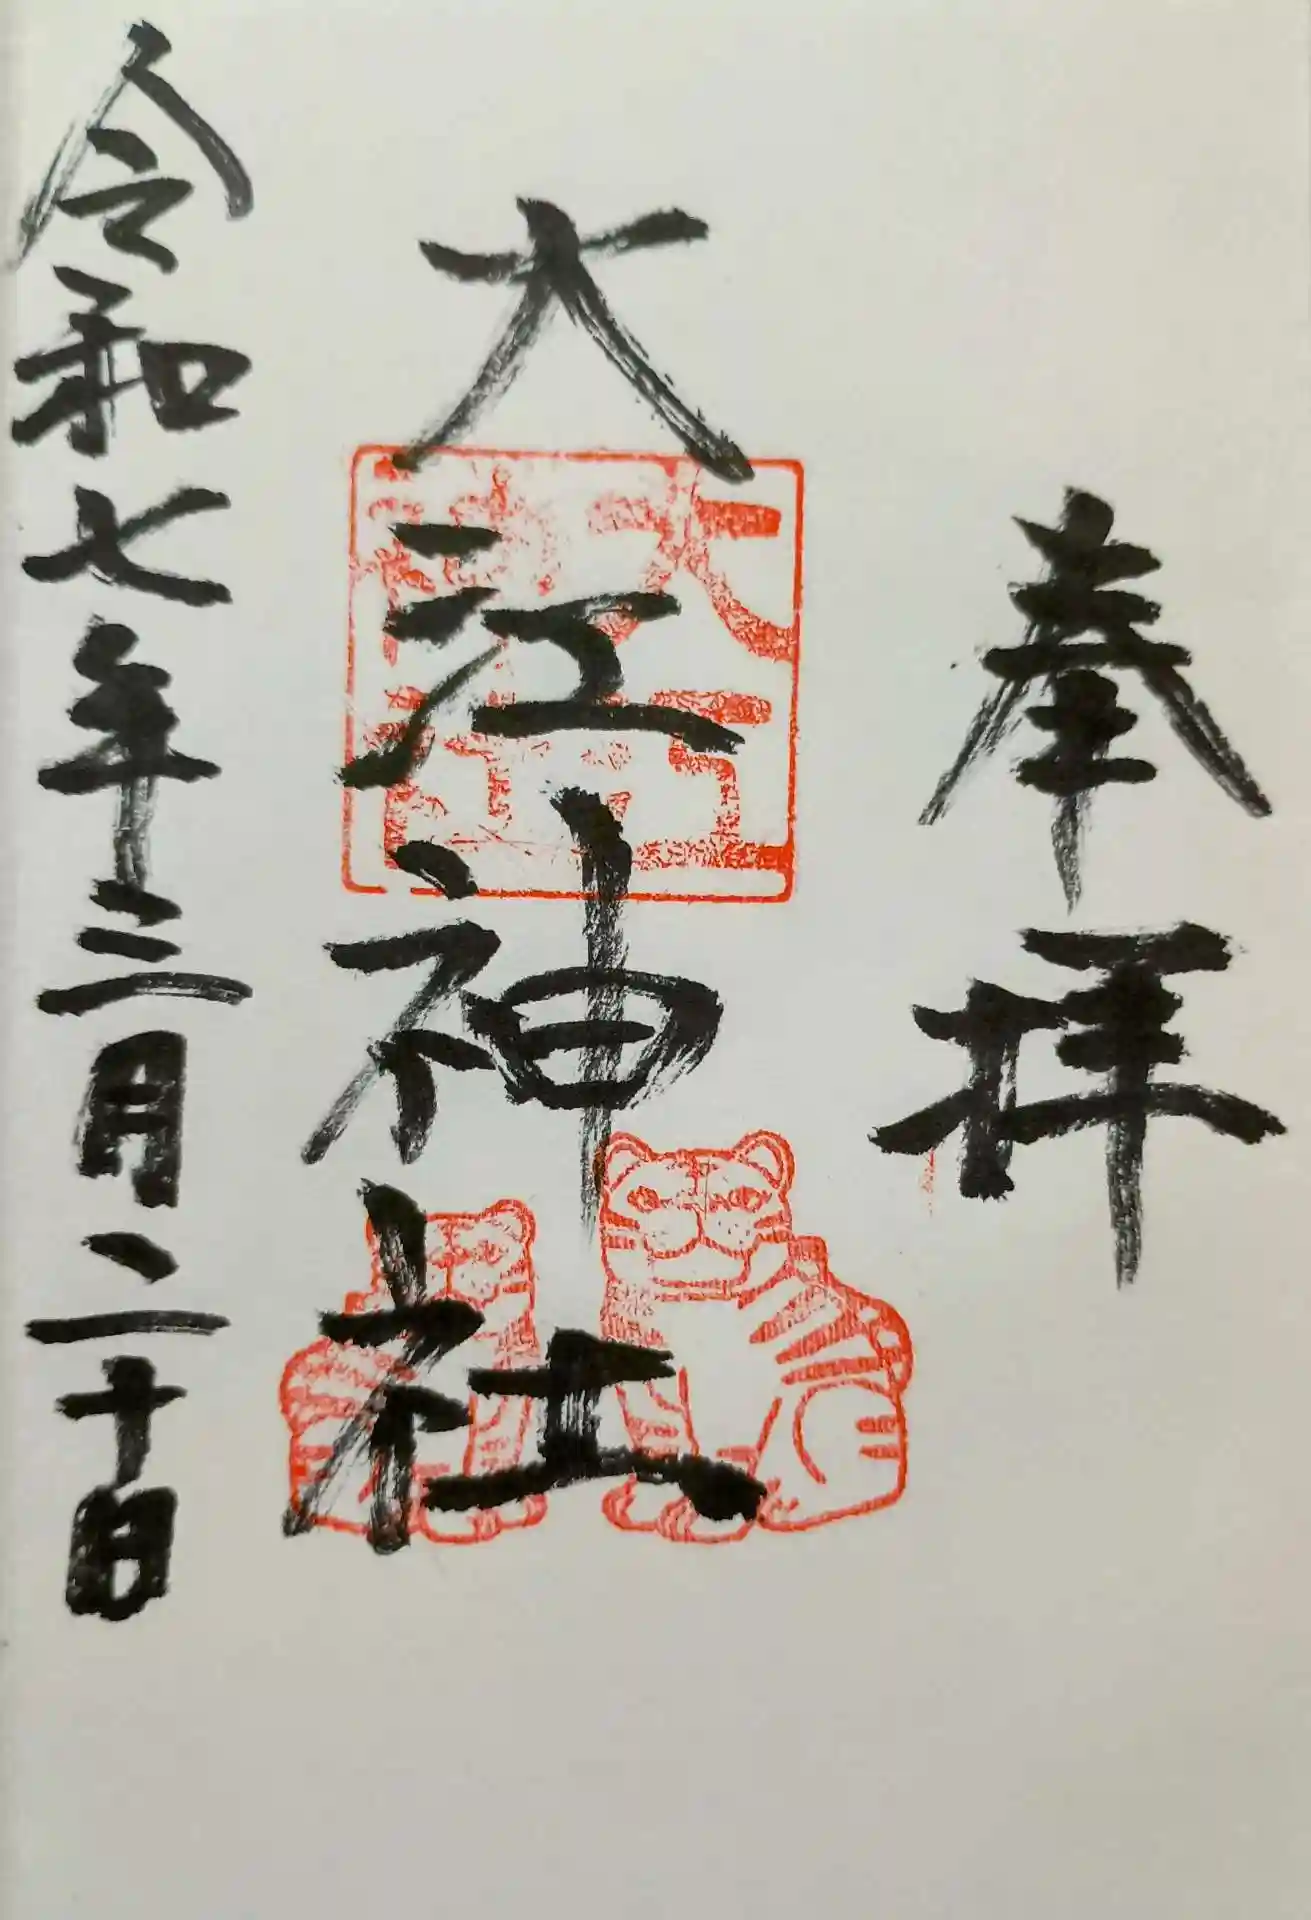 奉拝
大江神社
令和七年三月二十日